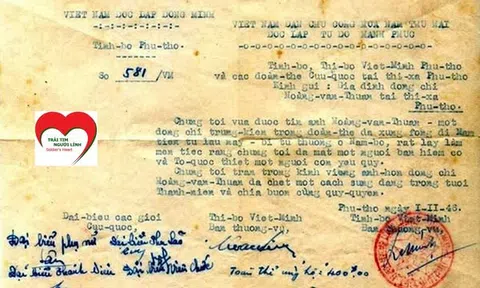 VIET NAM DOC LAP DONG MINH
VIET NAM DAN CHU CONG HOA NAM THU HAI
DOC LAP TU DO HANH PHUC
Tinh-bo Phu-tho
So 581/VM
Tinh-bo, Thi-bo Viet-Minh Phu-tho
va cac doan-the Cuu-quoc tai thi-xa Phu-tho
Kinh gui : Gia dinh dong chi
Hoang-van-Thuam tai thi-xa
Phu-tho.
TRÁI TIM
NGƯỜI LÍNH
Soldier's Heart
Chung toi vua duoc tin anh Hoang-van-Thuam - mot
dong chi trung-kien trong doan-the da xung fong di Nam
tien tu lau nay - bi tu thuong o Nam-bo, rat lay lam
thuong tiec rang chung toi da mat mot nguoi ban hiem co
va To-quoc thiet mot nguoi con yeu quy.
Chung toi tran trong kinh vieng anh-hon dong chi
Hoang-van-Thuam da chet mot cach sung dang trong tuoi
Thanh-nien va chia buon cung quy-quyen.
Phu-tho ngay I-II-46.
Dai-bieu cac gioi
Cuu-quoc,
Thi-bo Viet-Minh
Ban thuong-vu,
Tinh-bo Viet-Minh
Ban thuong-vu,
Đại biểu phụ nữ
Đại biểu
Đại biểu Thanh Niên
Đại biểu